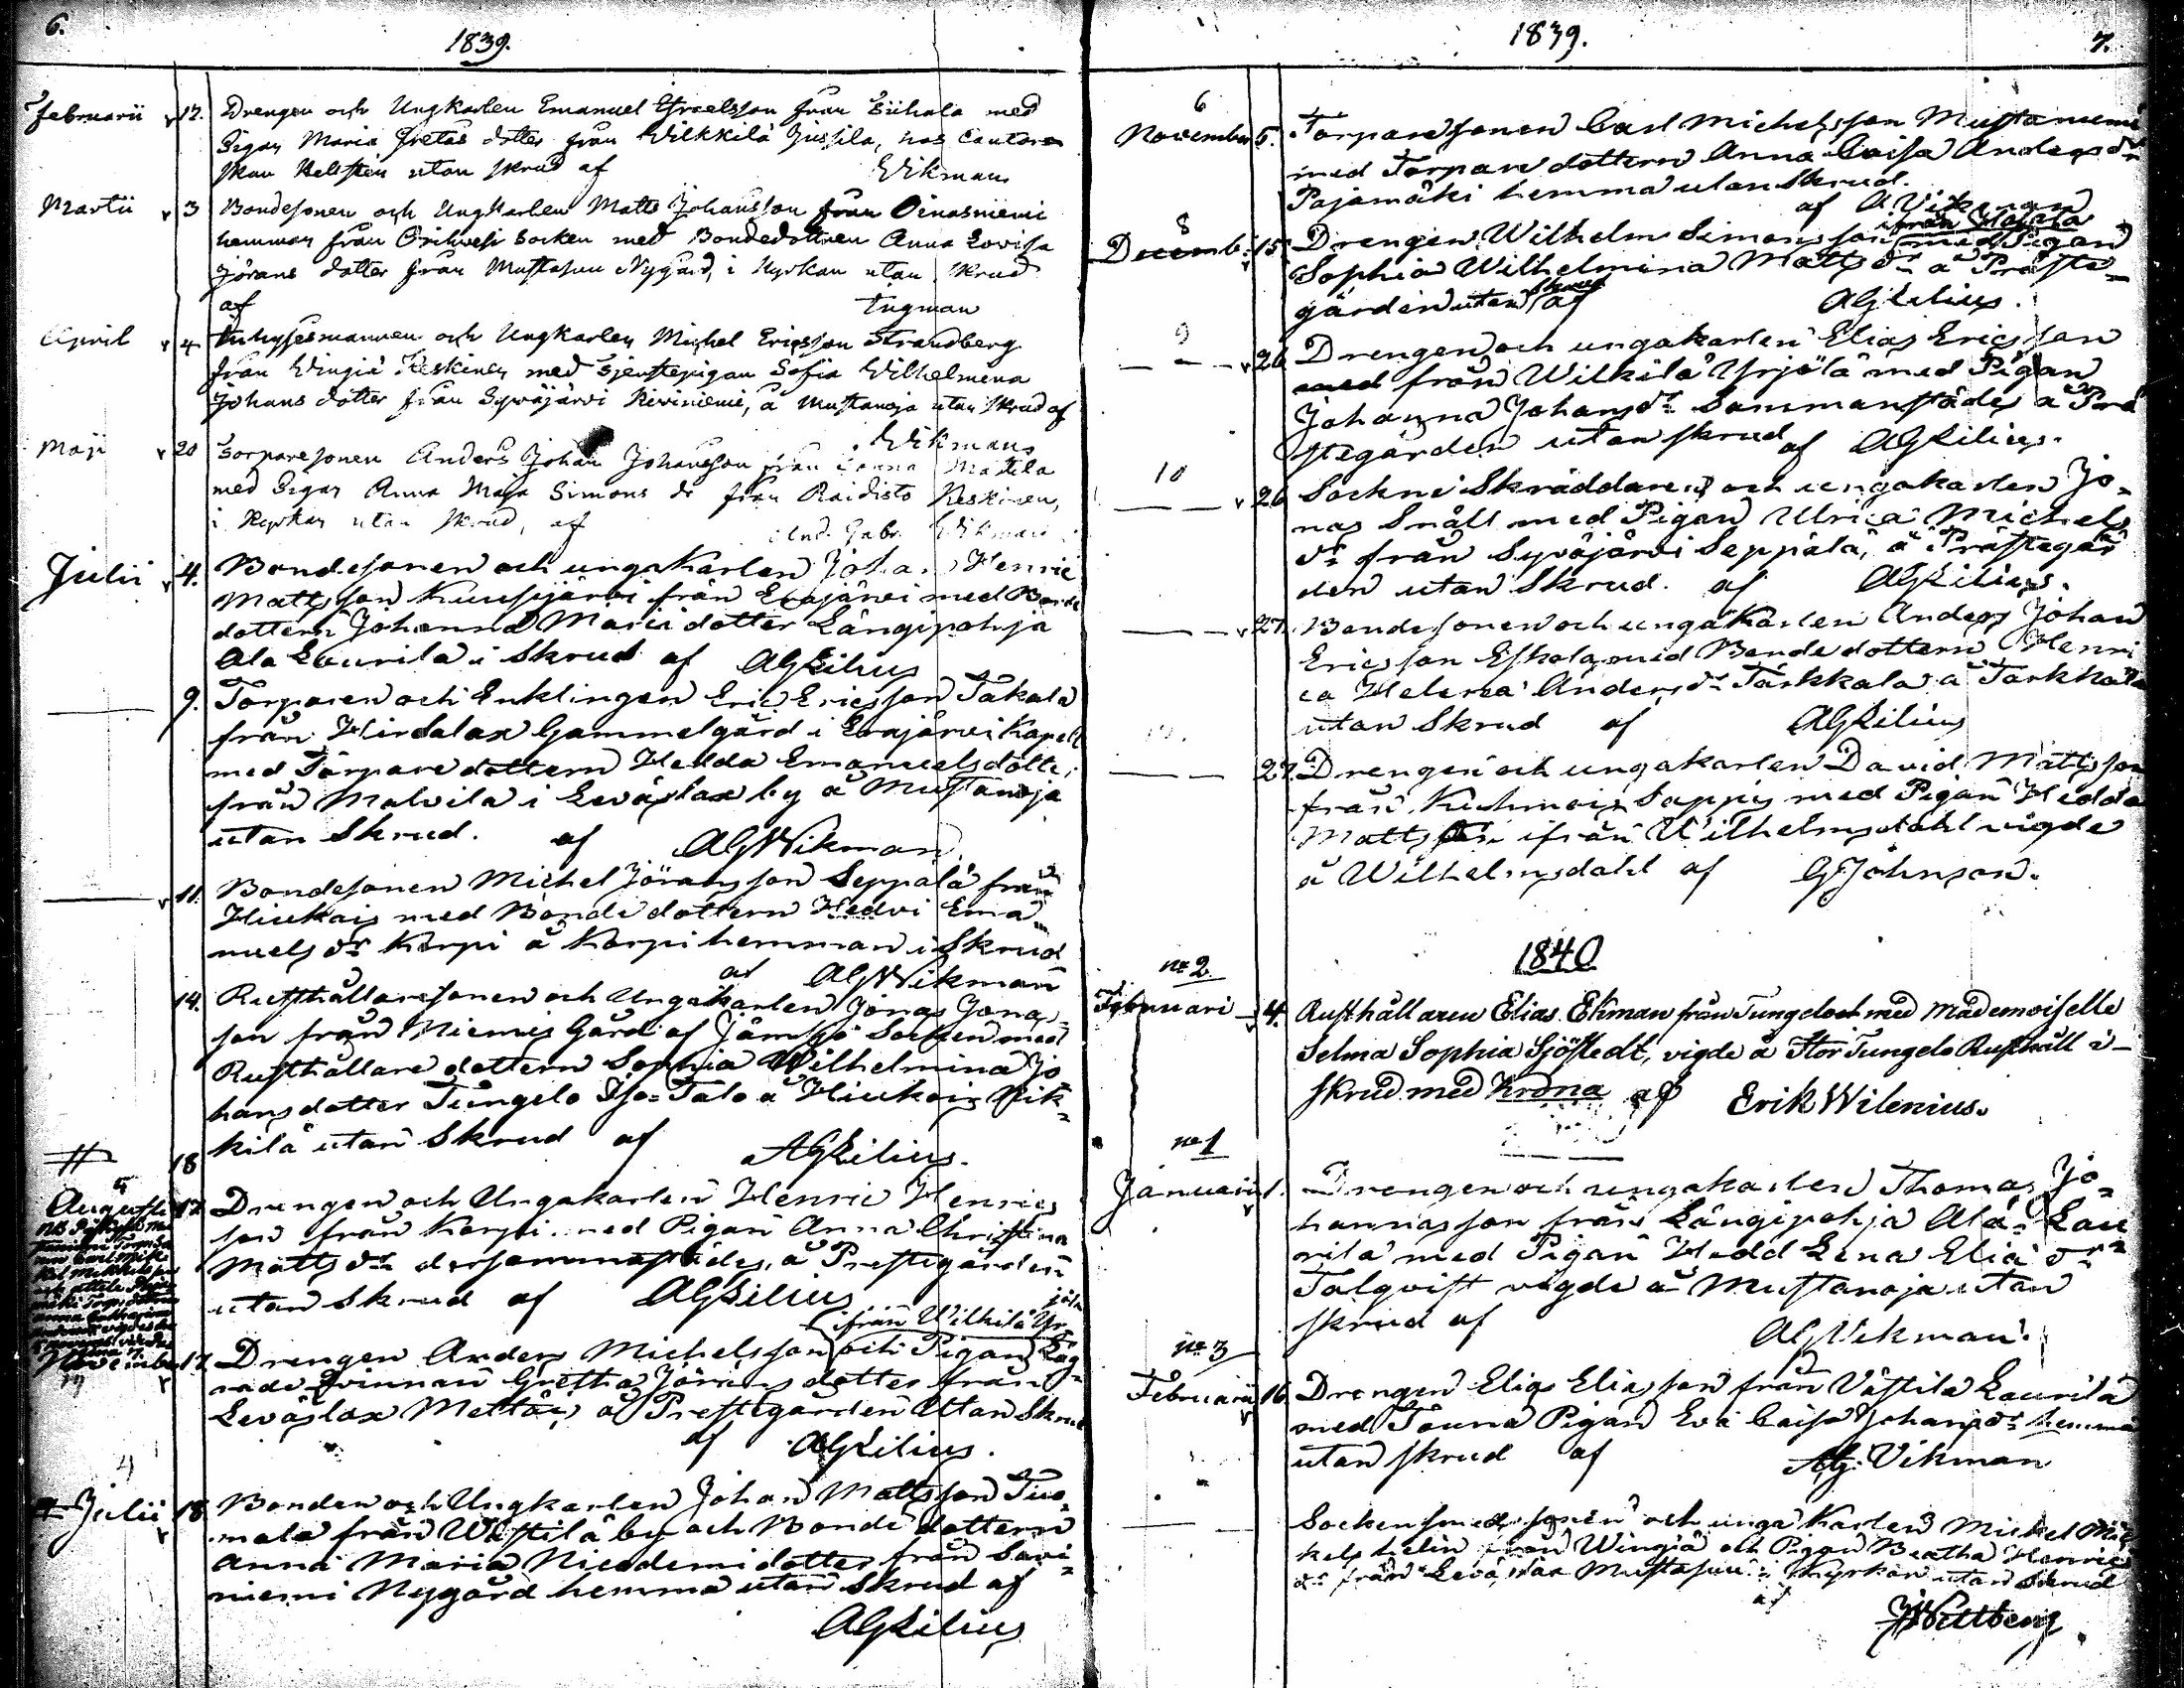 6.
1839.
Februarii 12. Drengen och Ungkarlen Emanuel Efraelsson från Siihala med
Pigan Maria Gretas dotter från Wilkkilä Jussila, hos Cantors
Hellsten utan skrud af Wikman
Martii 3 Bondesonen och Ungkarlen Matts Johansson från Oinasniemi
hemman från Orihvesi Socken med Bondedottren Anna Lovisa
Jörans dotter från Mustasuu Nygård, i Kyrkan utan skrud
af Tugman
April 4 Inhysesmannen och Ungkarlen Michel Ericsson Strandberg
från Wingiä Keskinen med tjenstepigan Sofia Wilhelmena
Johans dotter från Syväjärvi Kiviniemi, å Mustanoja utan skrud af
Wikman
Maji 20 Torparesonen Anders Johan Johansson från Mattila
med Pigan Anna Maja Simons dr från Raidisto Keskinen,
i Kyrkan utan skrud, af And. Gabr. Wikman
Julii 4. Bondesonen och ungakarlen Johan Henric
Mattsson Kuusijärvi från Erajärvi med Bonde
dottern Johanna Maria dotter Längipohja
Ala Laurila i Skrud af AGZilius
9. Torparen och Enklingen Eric Ericsson Takala
från Hirdalax Gammelgård i Erajärvi Kapell
med Torpare dottern Hedda Emanuels dotter
från Malvila i Leväslax by å Mustanoja
utan Skrud. af AGWikman
11. Bondesonen Michel Jöransson Seppälä från
Hiukais med Bonde dottern Hedvi Ema=
nuels dr Korpi å Korpi hemman i Skrud
af AGWikman
14. Rusthållaresonen och Ungakarlen Jonas Jonas
son från Niemis Gård af Jämsä Socken med
Rusthållare dottern Sophia Wilhelmina Jo
hans dotter Tungelo Iso=Talo å Hiukais Nik=
kilä utan Skrud af AGZilius.
18
5
Augusti 17 Drengen och Ungakarlen Henric Henrics
son från Korpi med Pigan Anna Christina
Matts dr dersammastädes, å Prestegården
utan Skrud af AGZilius
ifrån Wilkilä Yr jölä
November 17. Drengen Anders Michelsson och Pigan Läg=
rade Qvinnan Gretha Jörans dotter från
Leväslax Mettäi, å Prestegården utan Skrud
af AGZilius.
4
Julii 18. Bonden och Ungkarlen Johan Mattsson Tuo=
mala från Wästilä by och Bonde dottern
Anna Maria Nicodemi dotter från Savi=
niemi Nygård hemma utan Skrud af
AGZilius
1839.
7.
6
November 5. Torparesonen Carl Michelsson Mustaniemi
med Torpare dottern Anna Caisa Anders dr
Pajamäki hemma utan Skrud.
af AVikman
8
Decemb: 15. Drengen Wilhelm Simonsson ifrån med Pigan
Sophia Wilhelmina Matts dr å Präste=
gården utan Skrud af AGZilius.
9
26 Drengen och ungakarlen Elias Ericsson
med från Wilkilä Yrjölä med Pigan
Johanna Johans dr Sammanstädes å Prä
stegården utan skrud af AGZilius.
10
26 Sockne Skräddaren och ungakarlen Jo=
nas Snäll med Pigan Ulrica Michels
dr från Syväjärvi Seppälä, å Prästegår
den utan Skrud. af AGZilius.
27. Bondesonen och ungakarlen Anders Johan
Ericsson Eskola med Bonde dottern Henri
ca Helena Anders dr Tarkkala å Tarkkala
utan Skrud af AGZilius
27. Drengen och ungakarlen David Mattsson
från Kuhmois Sappis med Pigan Hedda
Matts dr ifrån Wilhelmsdahl vigde
å Wilhelmsdahl af GJohnson.
1840
no 2
Februari 4. Rusthållaren Elias Ekman från Tungelo med Mademoiselle
Selma Sophia Sjöstedt, vigde å Stor Tungelo Rusthåll i
skrud med Krona af Erik Wilenius.
no 1
Januarii 1. Drengen och ungakarlen Thomas Jo=
hannasson från Längipohja Ala=Lau
rila med Pigan Hedd Lena Elia dr
Talqvist vigde å Mustanoja utan
skrud af AGWikman.
no 3
Februarii 16. Drengen Elias Eliasson från Västilä Laurila
med Pigan Eva Caisa Johans dr hemma
utan skrud af AG. Vikman
Sockensmedssonen och unga Karlen Michel Mic
kels från Wingiä och Pigan Beatha Henrics
dr från Leväslax Mustasuu i Kyrkan utan Skrud
af